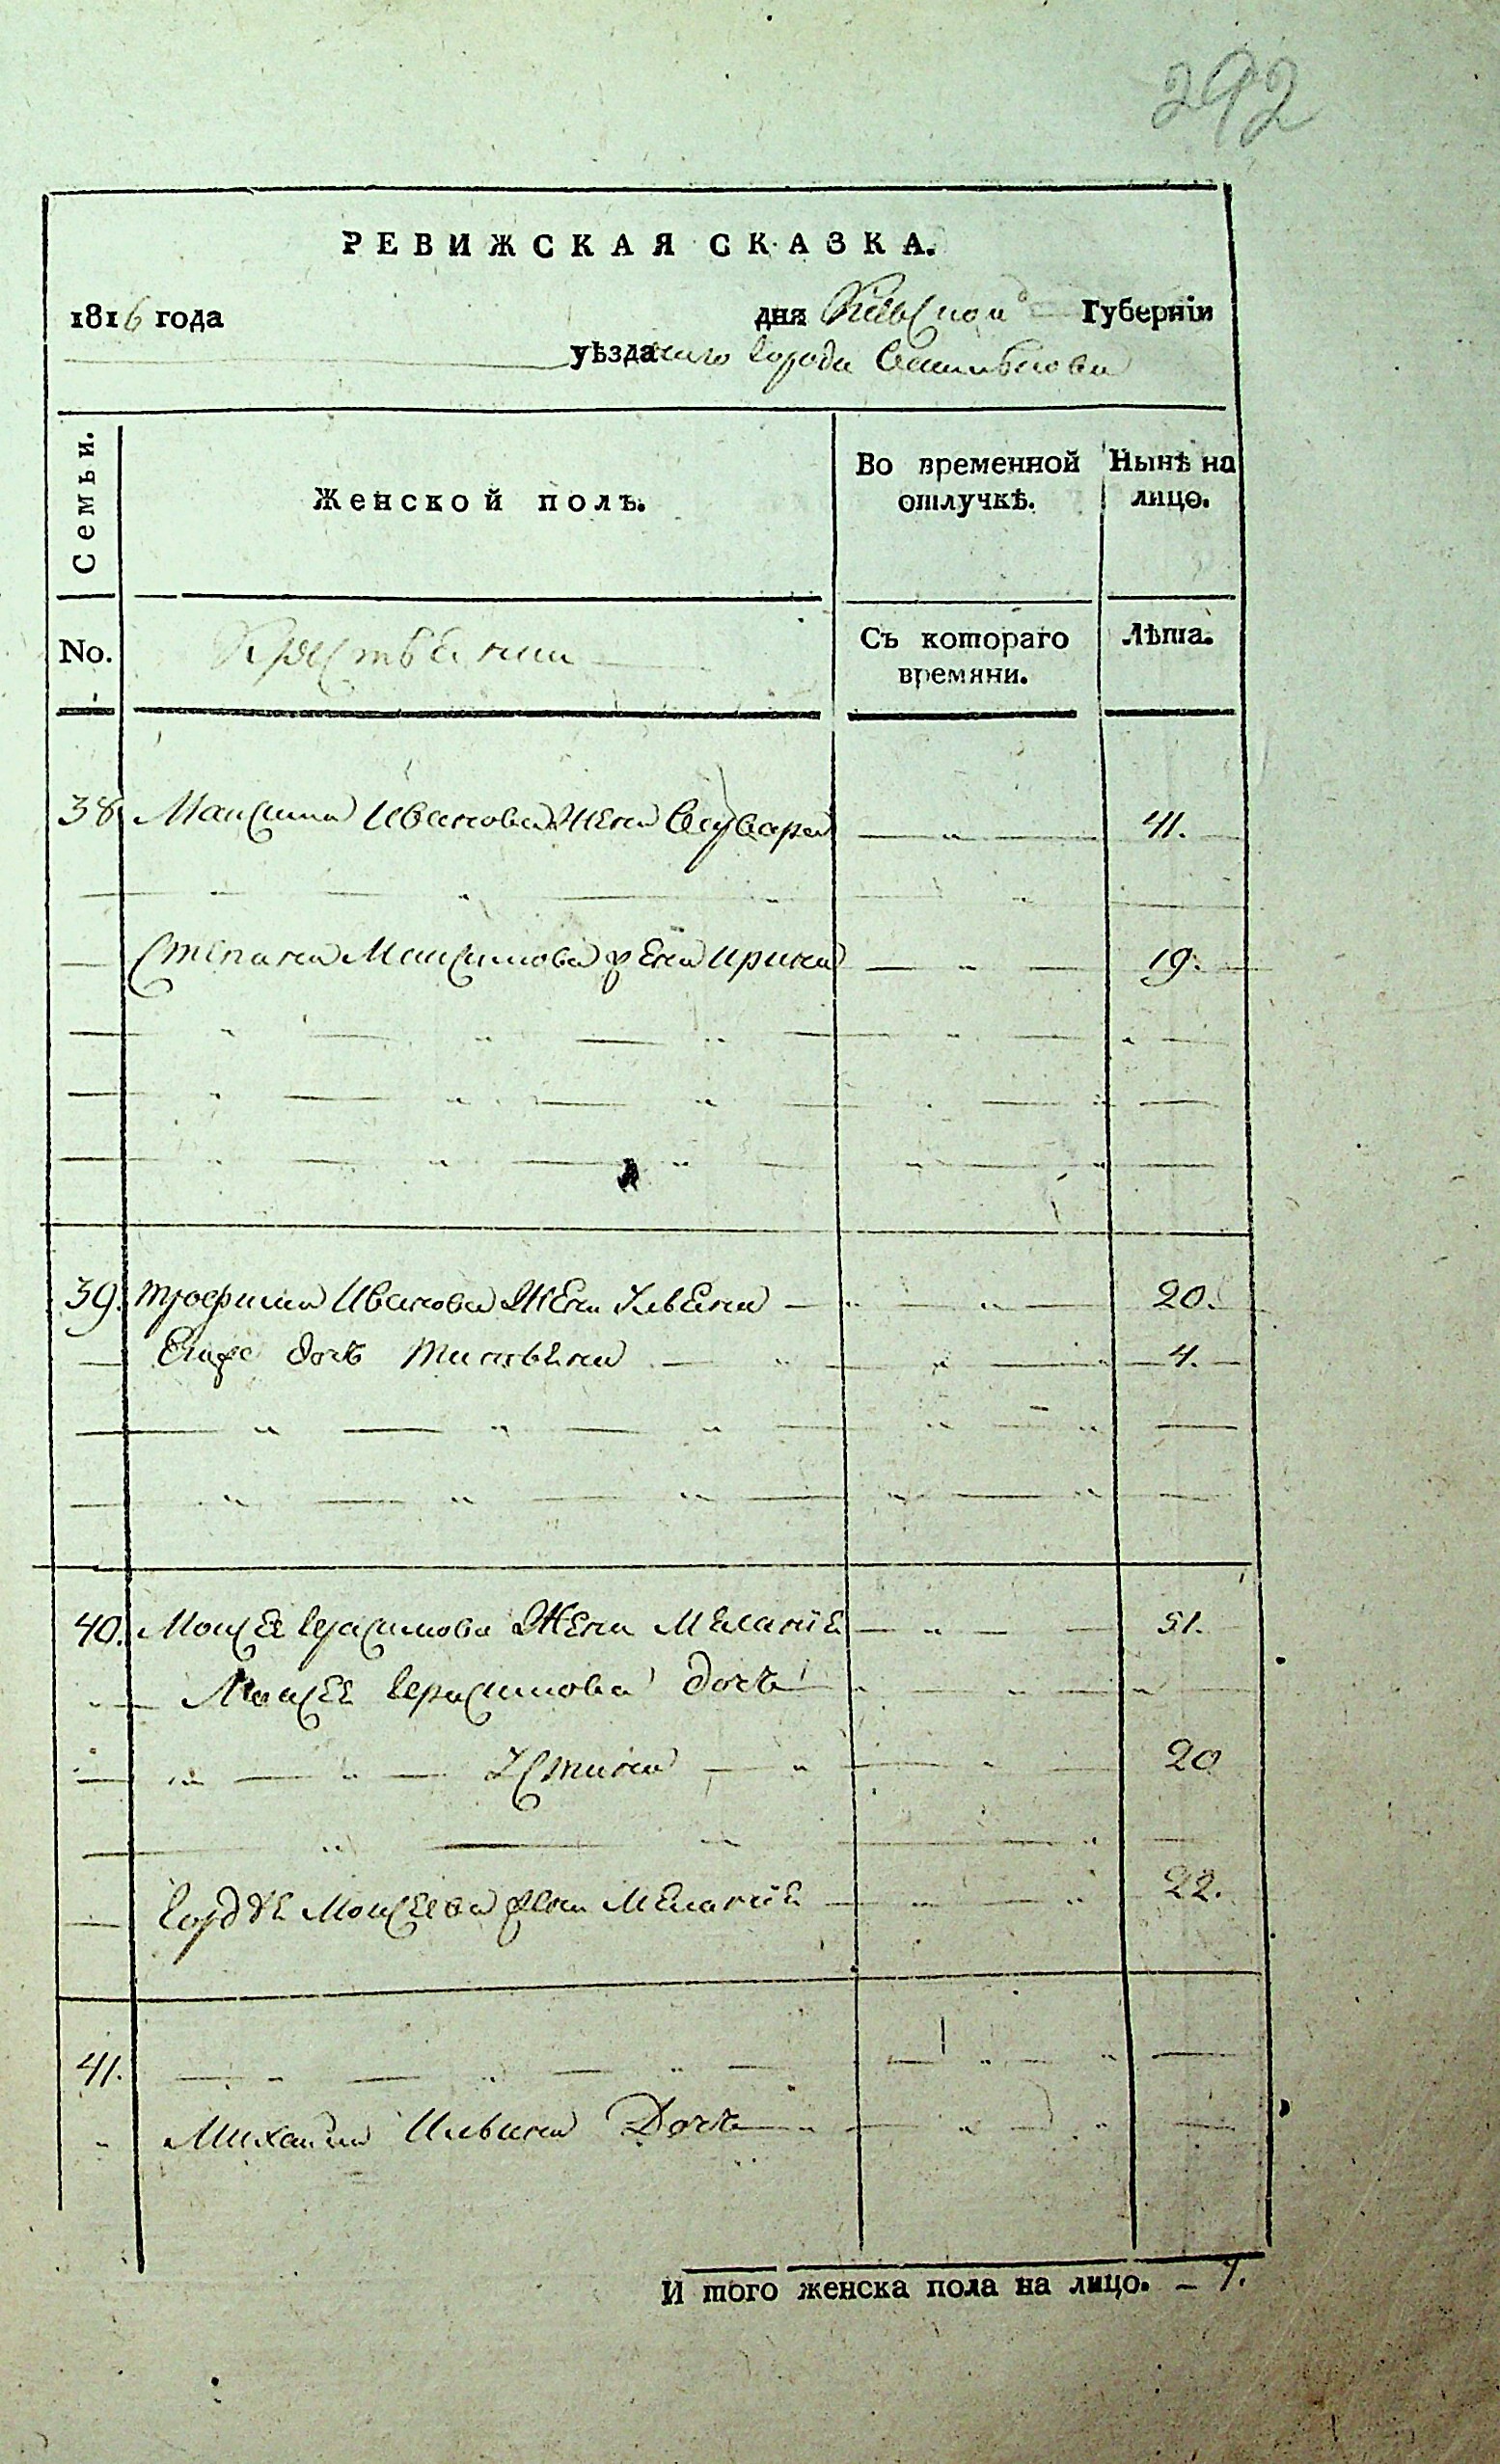 292
РЕВИЖСКАЯ СКАЗКА.
1816 года дня Киевской Губернїи
уѣзда города
Семьи. Женской полъ. Во временной отлучкѣ. Нынѣ на лицо.
No. Крестьянии Съ котораго времяни. Лѣта.
38 Максима Иванова Жена 41.
Степана Максимова жена ирина 19.
39. трофима Иванова Жена Ульяна 20.
Єго же дочь татьяна 4.
40. Моисея Герасимова Жена Меланїя 51.
Моисея Герасимова дочь
Устина 20
Гордѣя Моисеева жена Меланїя 22.
41.
Михайла Ильина Дочь
И того женска пола на лицо. 7.